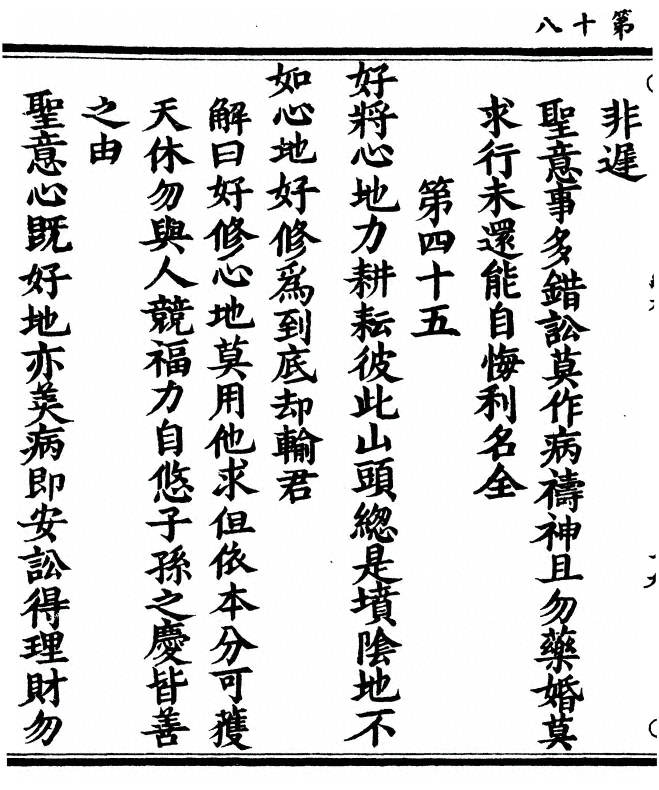 第十八
非遲
聖意事多錯訟莫作病禱神且勿藥婚莫
求行未還能自悔利名全
第四十五
好將心地力耕耘彼此山頭總是墳陰地不
如心地好修為到底却輸君
解曰好修心地莫用他求但依本分可獲
天休勿與人競福力自悠子孫之慶皆善
之由
聖意心既好地亦美病即安訟得理財勿